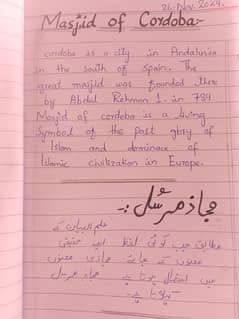 26-Nov-2024.
Masjid of Cordoba:-
Cordoba is a city in Andalusia
in the south of Spain. The
great masjid was founded there
by Abdul Rehman I. in 784
Masjid of cordoba is a living
Symbol of the past glory of
Islam and dominace of
Islamic civilization in Europe.
مجاز مرسل :-
علم البیان کے
مطابق جب کوئی لفظ اپنے حقیقی
معنوں کے بجائے مجازی معنوں
میں استعمال ہوتا ہے مجاز مرسل
کہلاتا ہے۔